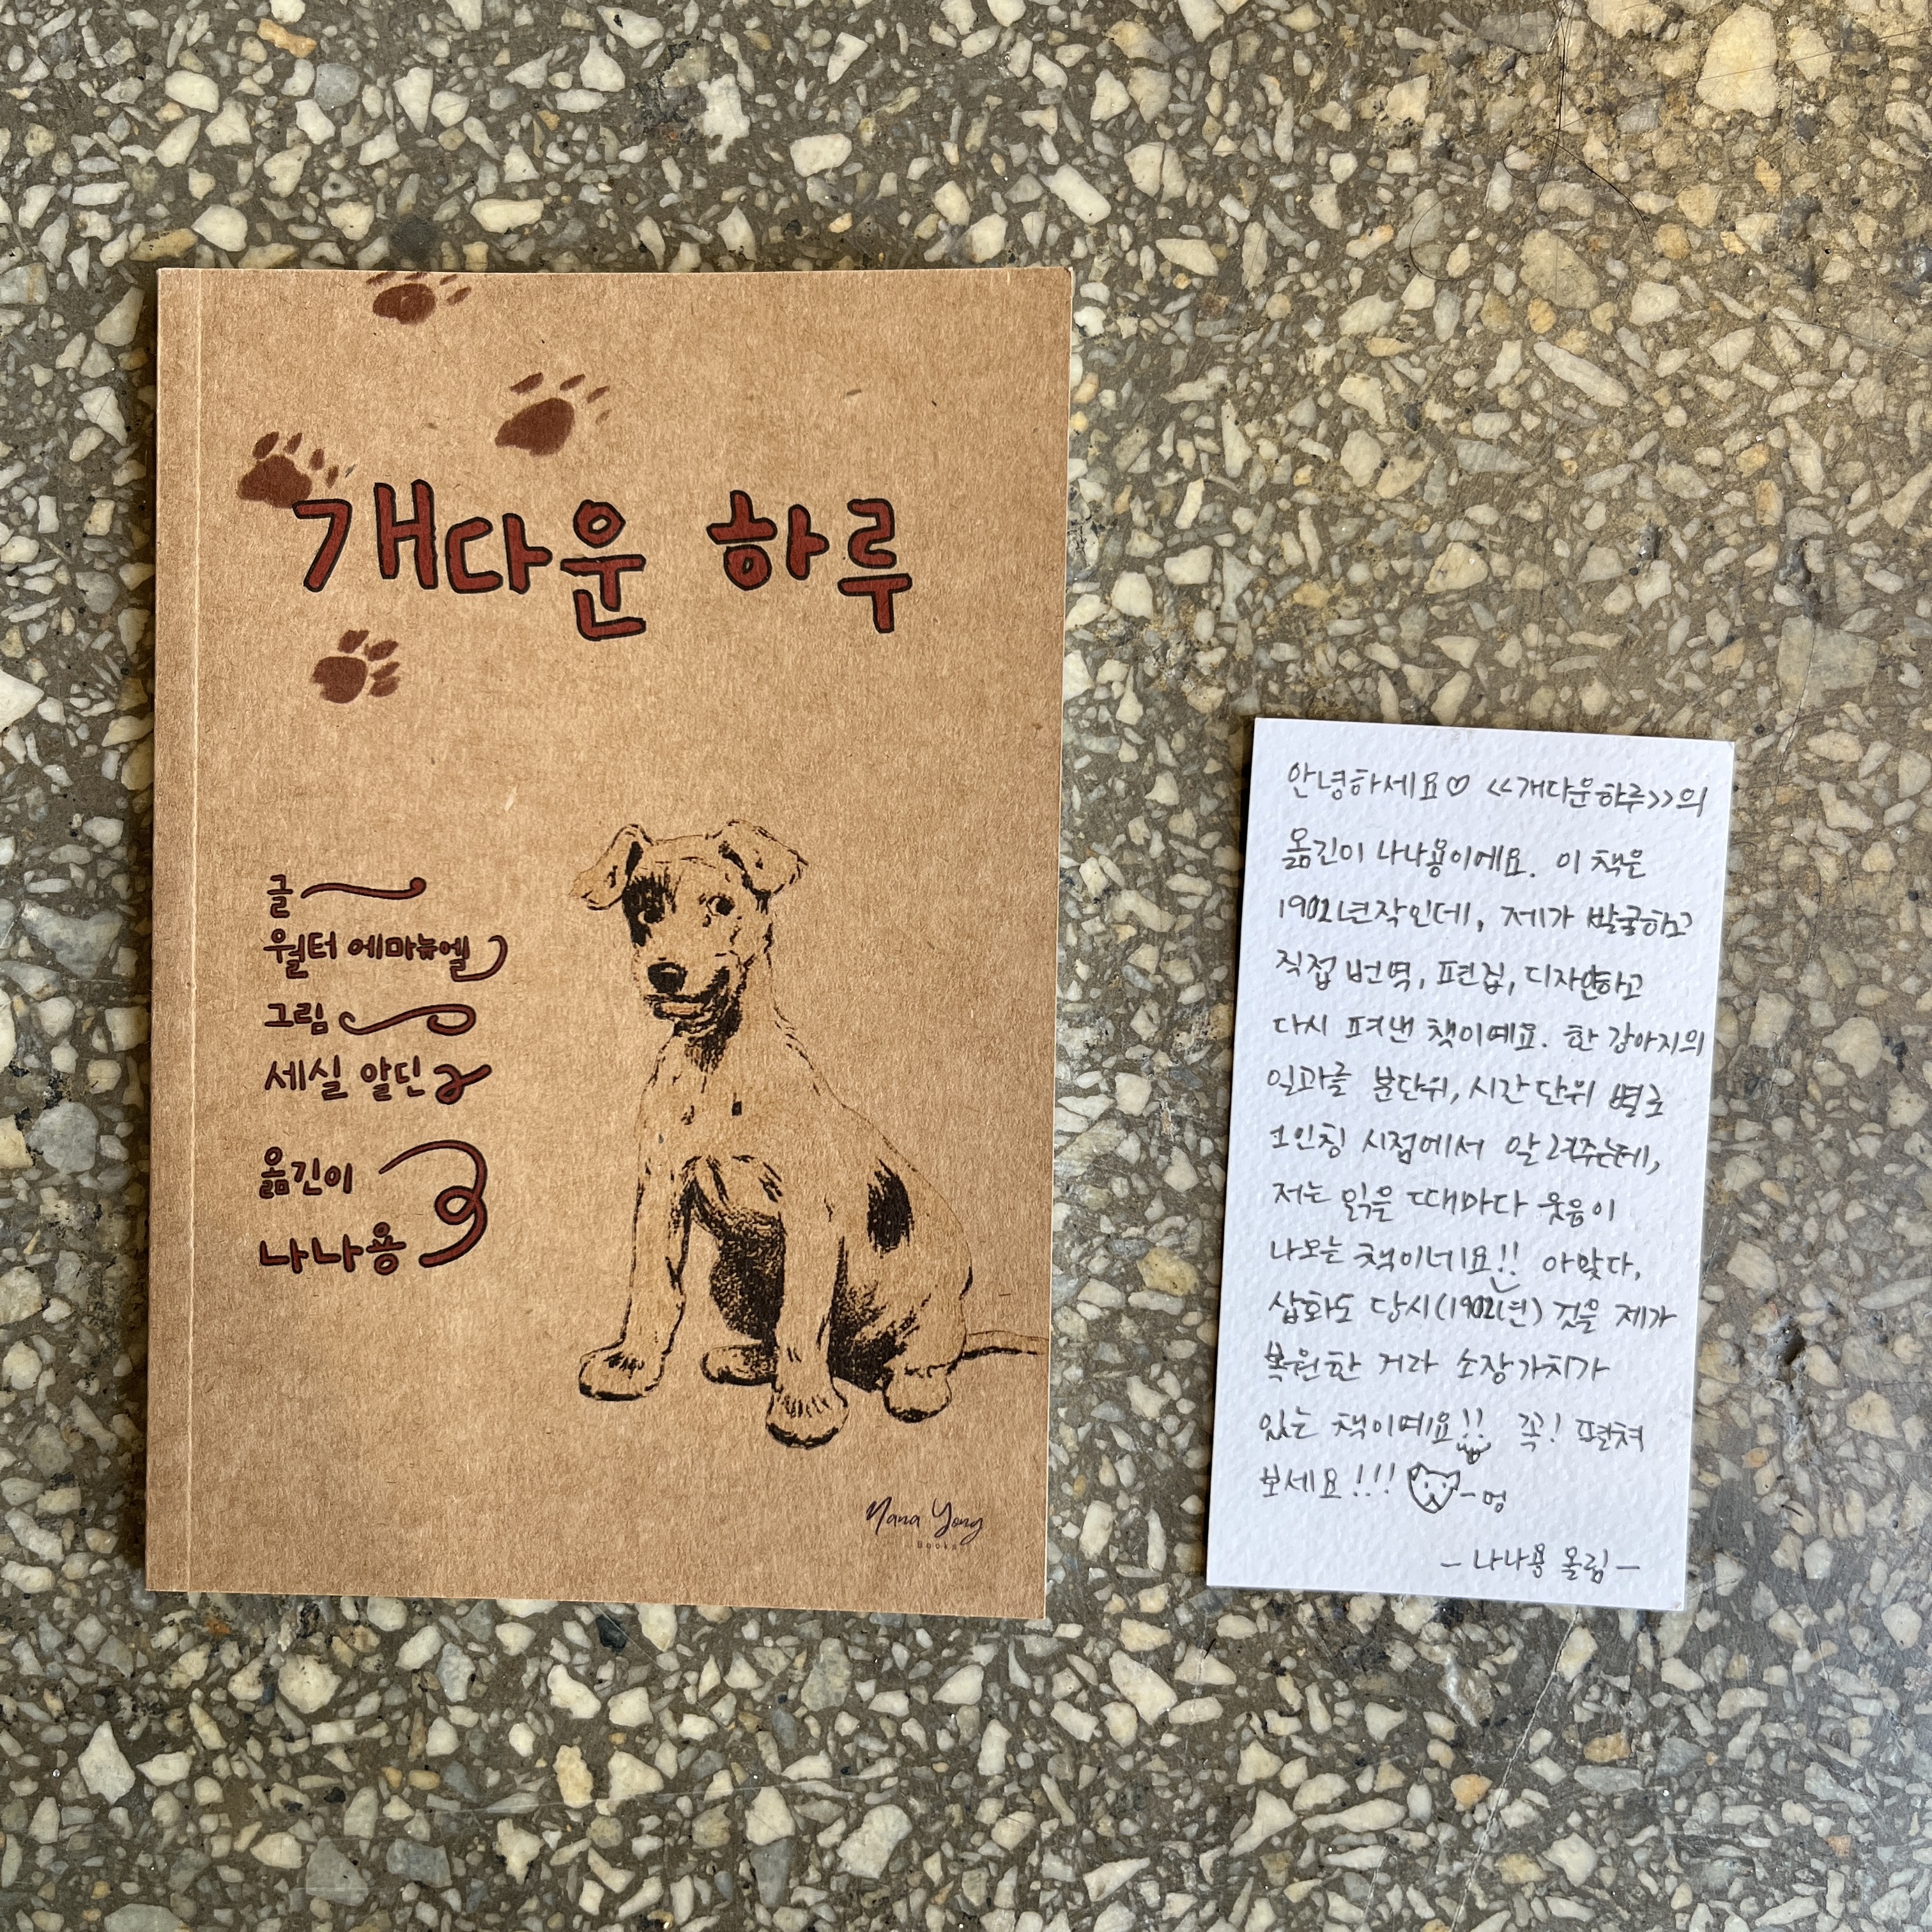 개다운 하루
글
월터 에마뉴엘
그림
세실 알딘
옮긴이
나나용
Nana Yong
Books
안녕하세요♡ <<개다운하루>>의
옮긴이 나나용이에요. 이 책은
1902년작인데, 제가 발굴하고
직접 번역, 편집, 디자인하고
다시 펴낸 책이예요. 한 강아지의
일과를 분단위, 시간 단위 별로
1인칭 시점에서 알려주는데,
저는 읽을 때마다 웃음이
나오는 책이네요!! 아맞다,
삽화도 당시(1902년) 것을 제가
복원한 거라 소장가치가
있는 책이예요!! 꼭! 펼쳐
보세요!!! -멍
- 나나용 올림 -